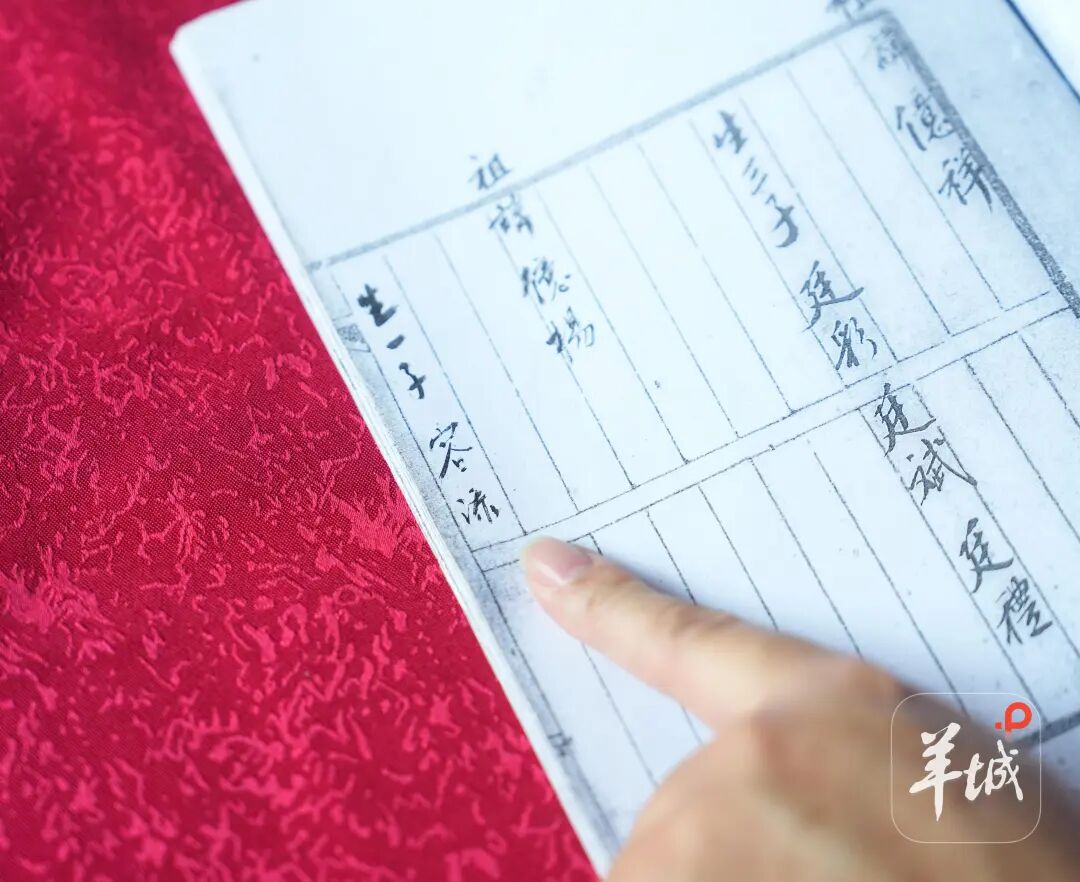 祖諱億祥
生三子 廷彩
廷斌 廷禮
祖諱億揚
生一子 容
羊城